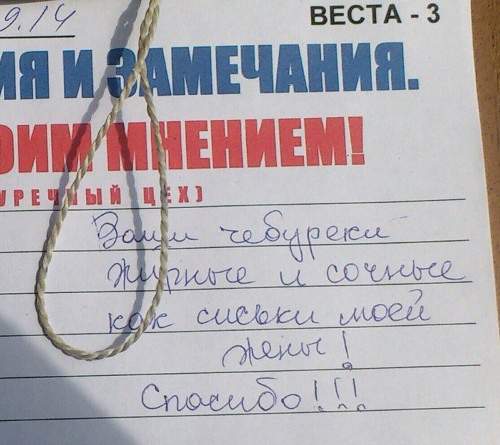 9.14
ВЕСТА - 3
ИЯ И ЗАМЕЧАНИЯ.
ОИМ МНЕНИЕМ!
УРЕЧНЫЙ ЦЕХ)
Ваши чебуреки
жирные и сочные
как сиськи моей
жены!
Спасибо!!!